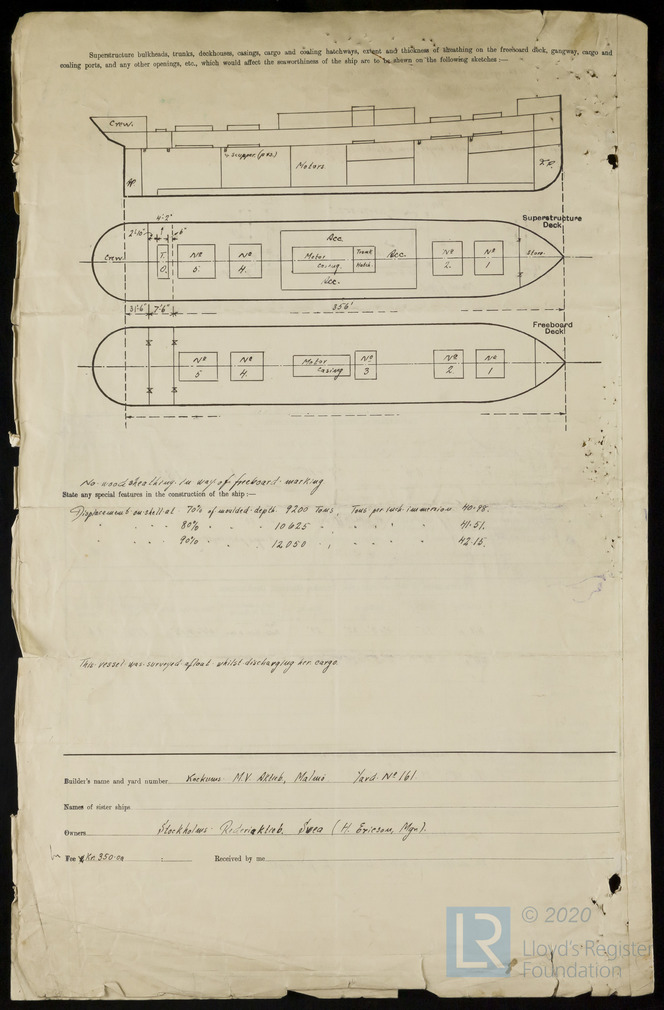 Superstructure bulkheads, trunks, deckhouses, casings, cargo and coaling hatchways, extent and thickness of sheathing on the freeboard deck, gangway, cargo and
coaling ports, and any other openings, etc., which would affect the seaworthiness of the ship are to be shewn on the following sketches :—
Crew.
Scupper (P & S.)
Motors.
Superstructure
Deck
4'-2"
2'-10"
6"
Crew
T.
O.
Nº
5.
Nº
4.
Acc.
Motor
Casing.
Trunk
Hatch.
Acc.
Acc.
Nº
2.
Nº
1
Store.
31'-6"
7'-6"
356'
Freeboard
Deck
Nº
5
Nº
4.
Motor
Casing
Nº
3
Nº
2.
Nº
1
No wood sheathing in way of freeboard marking
State any special features in the construction of the ship :—
Displacement on shell at 70% of moulded depth. 9200 Tons, Tons per inch immersion 40.98.
" " " 80% " " " 10625 " " " " 41.51.
" " " 90% " " " 12050 " " " " 42.15.
This vessel was surveyed afloat whilst discharging her cargo.
Builder's name and yard number Kockums M.V. Aktieb, Malmö Yard Nº 161
Names of sister ships
Owners Stockholms Rederiaktieb. Svea (H. Ericson, Mgr).
Fee Kr. 350.00 : Received by me
LR © 2020
Lloyd's Register
Foundation